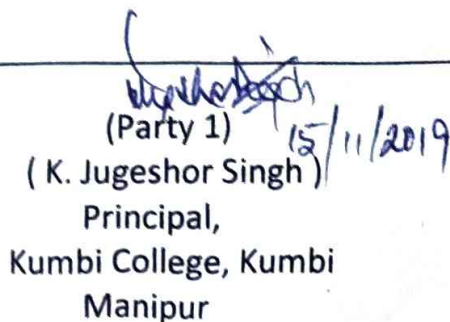 (Party 1)
15/11/2019
( K. Jugeshor Singh )
Principal,
Kumbi College, Kumbi
Manipur